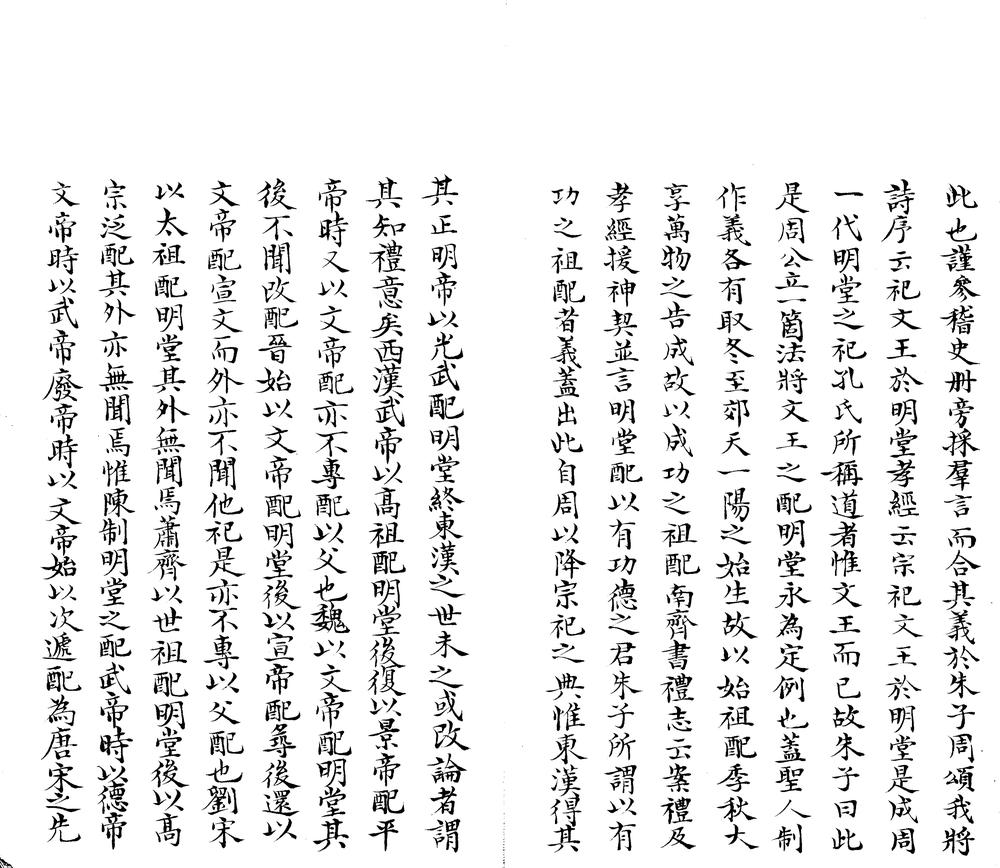 此也謹叅稽史册旁採羣言而合其義於朱子周頌我將
詩序云祀文王於明堂孝經云宗祀文王於明堂是成周
一代明堂之祀孔氏所稱道者惟文王而已故朱子曰此
是周公立一箇法將文王之配明堂永為定例也蓋聖人制
作義各有取冬至郊天一陽之始生故以始祖配季秋大
享萬物之告成故以成功之祖配南齊書禮志云案禮及
孝經援神契並言明堂配以有功德之君朱子所謂以有
功之祖配者義蓋出此自周以降宗祀之典惟東漢得其
其正明帝以光武配明堂終東漢之世未之或改論者謂
其知禮意矣西漢武帝以高祖配明堂後復以景帝配平
帝時又以文帝配亦不專配以父也魏以文帝配明堂其
後不聞改配晉始以文帝配明堂後以宣帝配尋後還以
文帝配宣文而外亦不聞他祀是亦不專以父配也劉宋
以太祖配明堂其外無聞焉蕭齊以世祖配明堂後以高
宗泛配其外亦無聞焉惟陳制明堂之配武帝時以德帝
文帝時以武帝廢帝時以文帝始以次遞配為唐宋之先